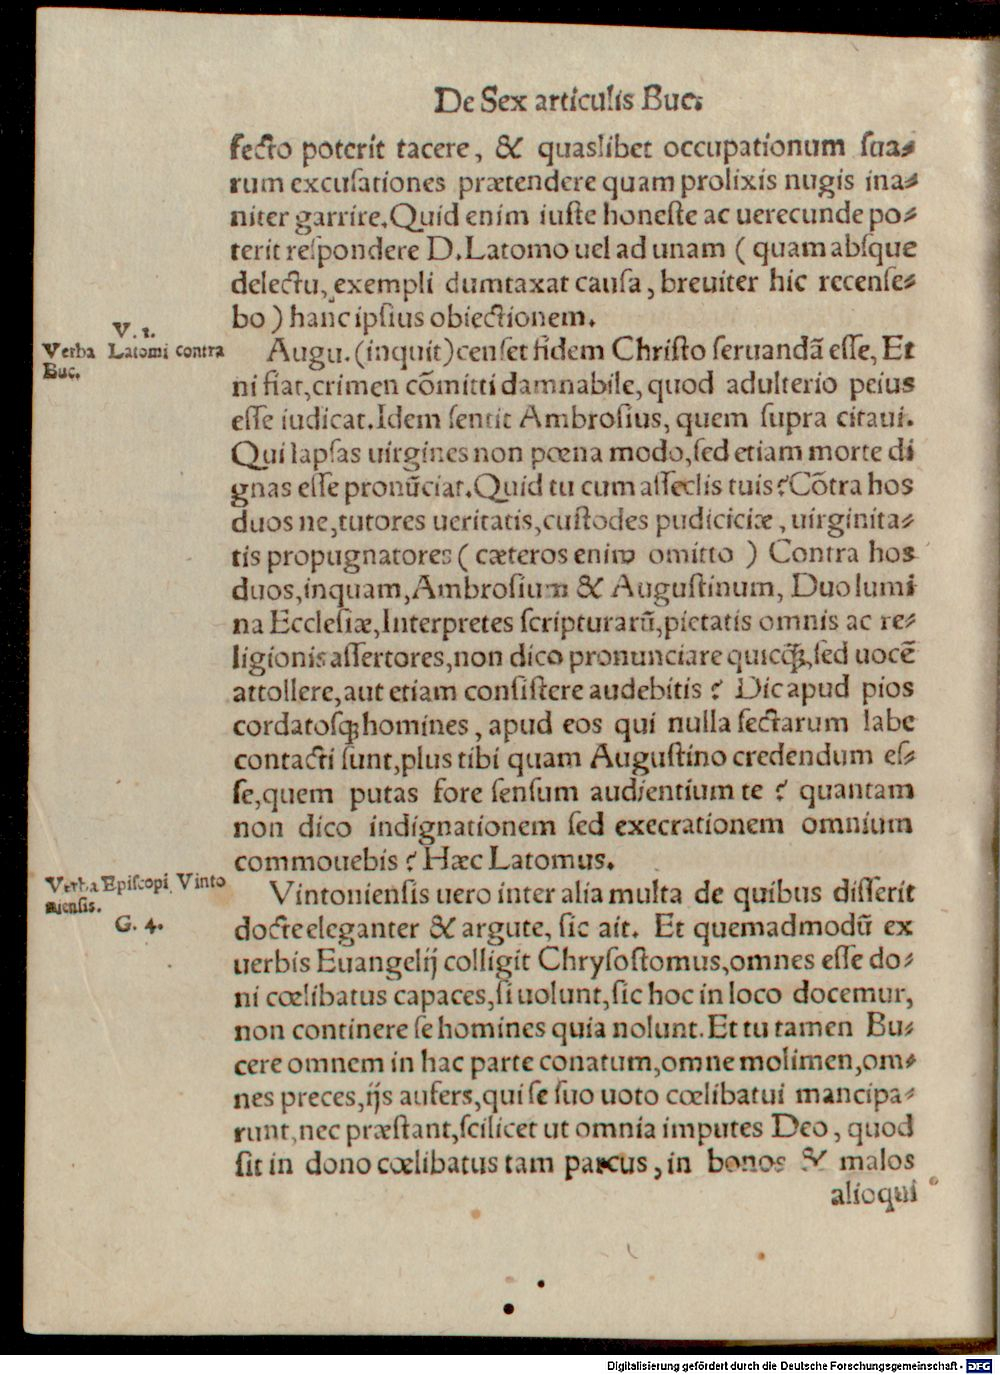 De Sex articulis Buc.
fecto poterit tacere, & quaslibet occupationum sua⸗
rum excusationes prætendere quam prolixis nugis ina⸗
niter garrire. Quid enim iuste honeste ac uerecunde po⸗
terit respondere D. Latomo uel ad unam ( quam absque
delectu, exempli dumtaxat causa, breuiter hic recense⸗
bo ) hanc ipsius obiectionem.
V. 1.
Verba Latomi contra
Buc.
Augu. (inquit) censet fidem Christo seruandã esse, Et
ni fiat, crimen cõmitti damnabile, quod adulterio peius
esse iudicat. Idem sentit Ambrosius, quem supra citaui.
Qui lapsas uirgines non pœna modo, sed etiam morte di
gnas esse pronũciat. Quid tu cum asseclis tuis? Cõtra hos
duos ne, tutores ueritatis, custodes pudiciciæ, uirginita⸗
tis propugnatores ( cæteros enim omitto ) Contra hos
duos, inquam, Ambrosium & Augustinum, Duo lumi
na Ecclesiæ, Interpretes scripturarũ, pietatis omnis ac re⸗
ligionis assertores, non dico pronunciare quicꝗ̃, sed uocẽ
attollere, aut etiam consistere audebitis? Dic apud pios
cordatosꝗ; homines, apud eos qui nulla sectarum labe
contacti sunt, plus tibi quam Augustino credendum es⸗
se, quem putas fore sensum audientium te? quantam
non dico indignationem sed execrationem omnium
commouebis? Hæc Latomus.
Verba Episcopi Vinto
niensis.
G. 4.
Vintoniensis uero inter alia multa de quibus disserit
docte eleganter & argute, sic ait. Et quemadmodũ ex
uerbis Euangelij colligit Chrysostomus, omnes esse do⸗
ni cœlibatus capaces, si uolunt, sic hoc in loco docemur,
non continere se homines quia nolunt. Et tu tamen Bu⸗
cere omnem in hac parte conatum, omne molimen, om⸗
nes preces, ijs aufers, qui se suo uoto cœlibatui mancipa⸗
runt, nec præstant, scilicet ut omnia imputes Deo, quod
sit in dono cœlibatus tam parcus, in bonos & malos
alioqui
Digitalisierung gefördert durch die Deutsche Forschungsgemeinschaft - DFG